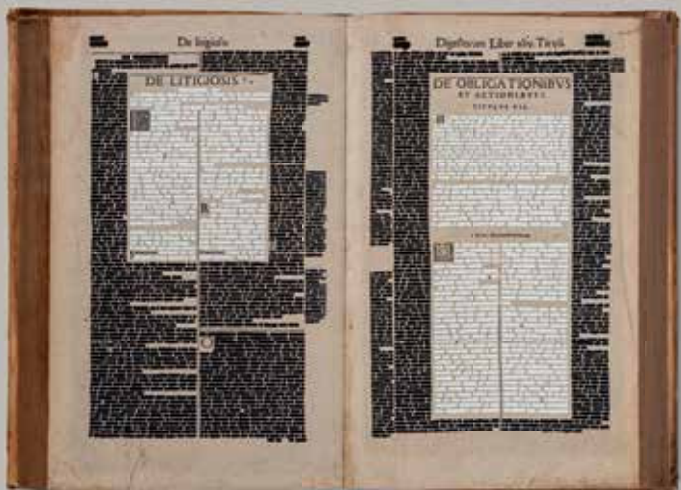 De litigiosis
DE LITIGIOSIS
R
C
Digestorum Liber xliv. Tit. vii.
DE OBLIGATIONIBVS
ET ACTIONIBVS
TITVLVS VII.